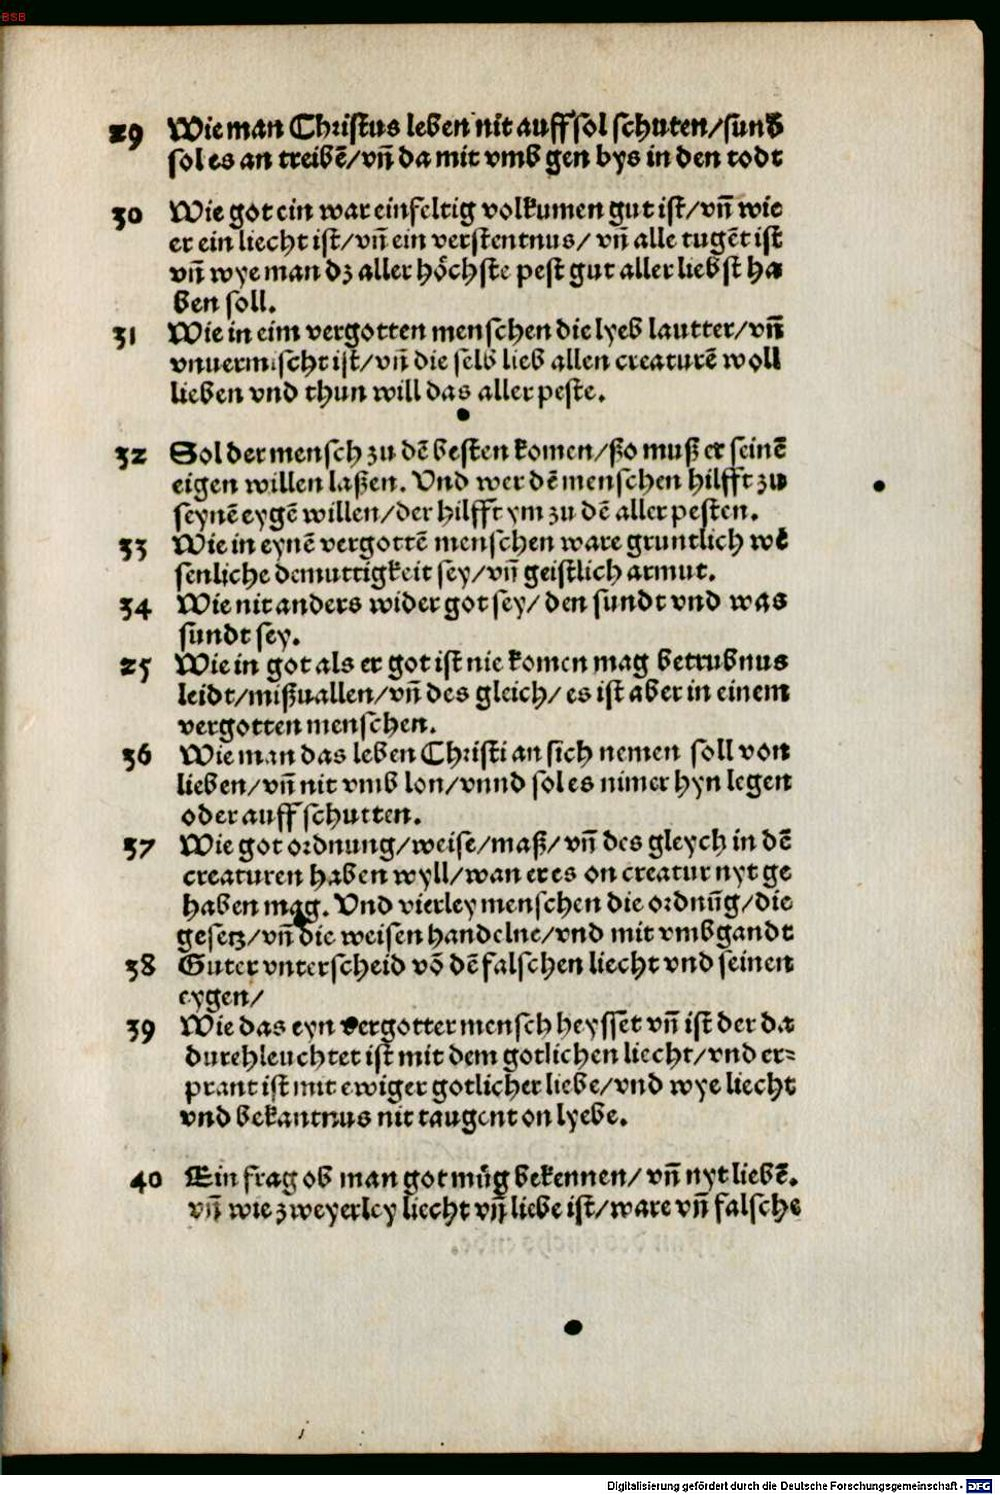 BSB
29 Wie man Christus leben nit auff sol schuten/sund̄
sol es an treibē/vn̄ da mit vmb gen bys in den todt
30 Wie got ein war einfeltig volkumen gut ist/vn̄ wie
er ein liecht ist/vn̄ ein verstentnus/ vn̄ alle tugēt ist
vn̄ wye man dz aller hȯchste pest gut aller liebst ha
ben soll.
31 Wie in eim vergotten menschen die lyeb lautter/vn̄
vnuermischt ist/vn̄ die selb lieb allen creaturē woll
lieben vnd thun will das aller peste.
32 Sol der mensch zu dē besten komen/ßo muß er seinē
eigen willen laßen. Vnd wer dē menschen hilfft zu
seynē eygē willen/der hilfft ym zu dē aller pesten.
33 Wie in eynē vergottē menschen ware gruntlich wē
senliche demuttigkeit sey/vn̄ geistlich armut.
34 Wie nit anders wider got sey/ den sundt vnd was
sundt sey.
25 Wie in got als er got ist nie komen mag betrubnus
leidt/mißuallen/vn̄ des gleich/ es ist aber in einem
vergotten menschen.
36 Wie man das leben Christi an sich nemen soll von
lieben/vn̄ nit vmb lon/vnnd sol es nimer hyn legen
oder auff schutten.
37 Wie got ordnung/weise/maß/vn̄ des gleych in dē
creaturen haben wyll/wan er es on creatur nyt ge
haben mag. Vnd vierley menschen die ordnūg/die
gesetz/vn̄ die weisen handelne/vnd mit vmbgandt
38 Guter vnterscheid vō dē falschen liecht vnd seinen
eygen/
39 Wie das eyn vergotter mensch heysset vn̄ ist der da
durehleuchtet ist mit dem gotlichen liecht/vnd er⸗
prant ist mit ewiger gotlicher liebe/vnd wye liecht
vnd bekantnus nit taugent on lyebe.
40 Ein frag ob man got mūg bekennen/ vn̄ nyt liebē.
vn̄ wie zweyerley liecht vn̄ liebe ist/ware vn̄ falsche
Digitalisierung gefördert durch die Deutsche Forschungsgemeinschaft - DFG